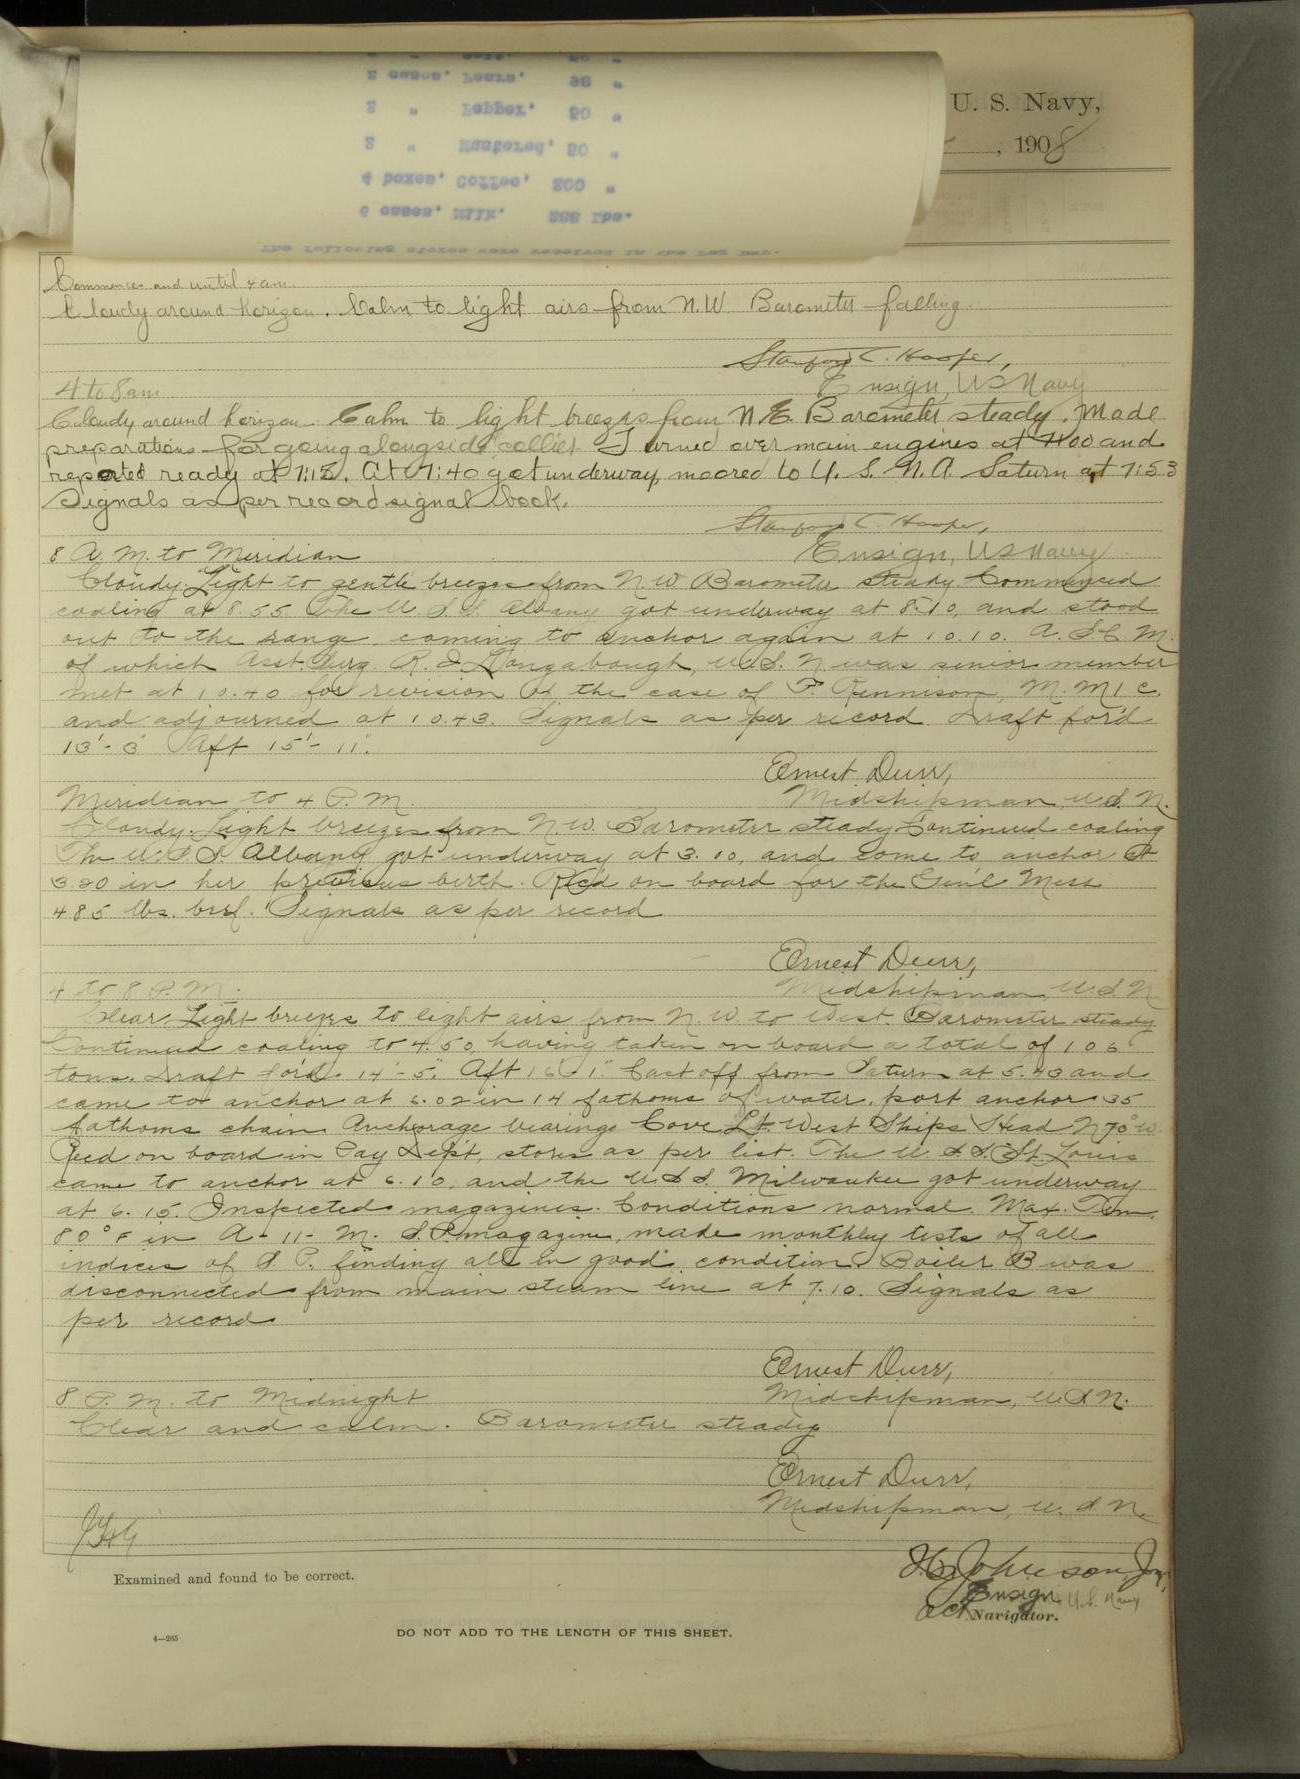 U. S. Navy,
, 1908
2 cases. Pears. 98 "
2 " Pepper. 50 "
2 " Mustered. 50 "
4 boxes. Coffee. 200 "
6 cases. Milk. 288 lbs.
The following stores were received in the Pay Dept.
Commences and until 4 am
Cloudy around horizon. Calm to light airs from N.W Barometer falling.
Stanford C. Hooper,
Ensign, US Navy
4 to 8 am
Cloudy around horizon. Calm to light breezes from N.E. Barometer steady. Made
preparations for going alongside collier. Turned over main engines at 7:00 and
reported ready at 7:15. At 7:40 got underway, moored to U. S. N. A. Saturn at 7:53
Signals as per record signal book.
Stanford C. Hooper,
Ensign, US Navy
8 A. M. to Meridian
Cloudy. Light to gentle breezes from N.W. Barometer steady. Commenced
coaling at 8.55. The U. S. S. Albany got underway at 8.10, and stood
out to the range, coming to anchor again at 10.10. A. S. & M.
of which Asst. Surg. R. I. Longabough, U. S. N was senior member
met at 10.40 for revision of the case of F. Kennison, M. M 1 c.
and adjourned at 10.43. Signals as per record Draft for'd
13'-3" Aft 15'-11".
Ernest Durr,
Midshipman, U. S. N.
Meridian to 4 P. M.
Cloudy. Light breezes from N.W. Barometer steady Continued coaling
The U. S. S. Albany got underway at 3.10, and come to anchor at
3.20 in her previous berth. Rec'd on board for the Gen'l Mess
485 lbs. beef. Signals as per record
Ernest Durr,
Midshipman, U. S. N
4 to 8 P. M.
Clear. Light breezes to light airs from N. W. to West. Barometer steady
Continued coaling to 4.50, having taken on board a total of 106
tons. Draft for'd. 14'-5", Aft 16'-1". Cast off from Saturn at 5.43 and
came to anchor at 6.02 in 14 fathoms of water, port anchor 35
fathoms chain. Anchorage bearings Cove Lt. West Ships Head N 70° W.
Rec'd on board in Pay Dep't, stores as per list. The U. S. S. St. Louis
came to anchor at 6.10, and the U. S. S. Milwaukee got underway
at 6.15. Inspected magazines. Conditions normal. Max. Tem.
80° F in A-11-M. S. P. magazine, made monthly tests of all
indices of S. P. finding all in good condition. Boiler B was
disconnected from main steam line at 7.10. Signals as
per record
Ernest Durr,
Midshipman, U. S. N.
8 P. M to Midnight
Clear and calm. Barometer steady
Ernest Durr,
Midshipman, U. S. N.
Examined and found to be correct.
Johnson, Jr.,
Ensign U. S. Navy
Act. Navigator.
4—265
DO NOT ADD TO THE LENGTH OF THIS SHEET.